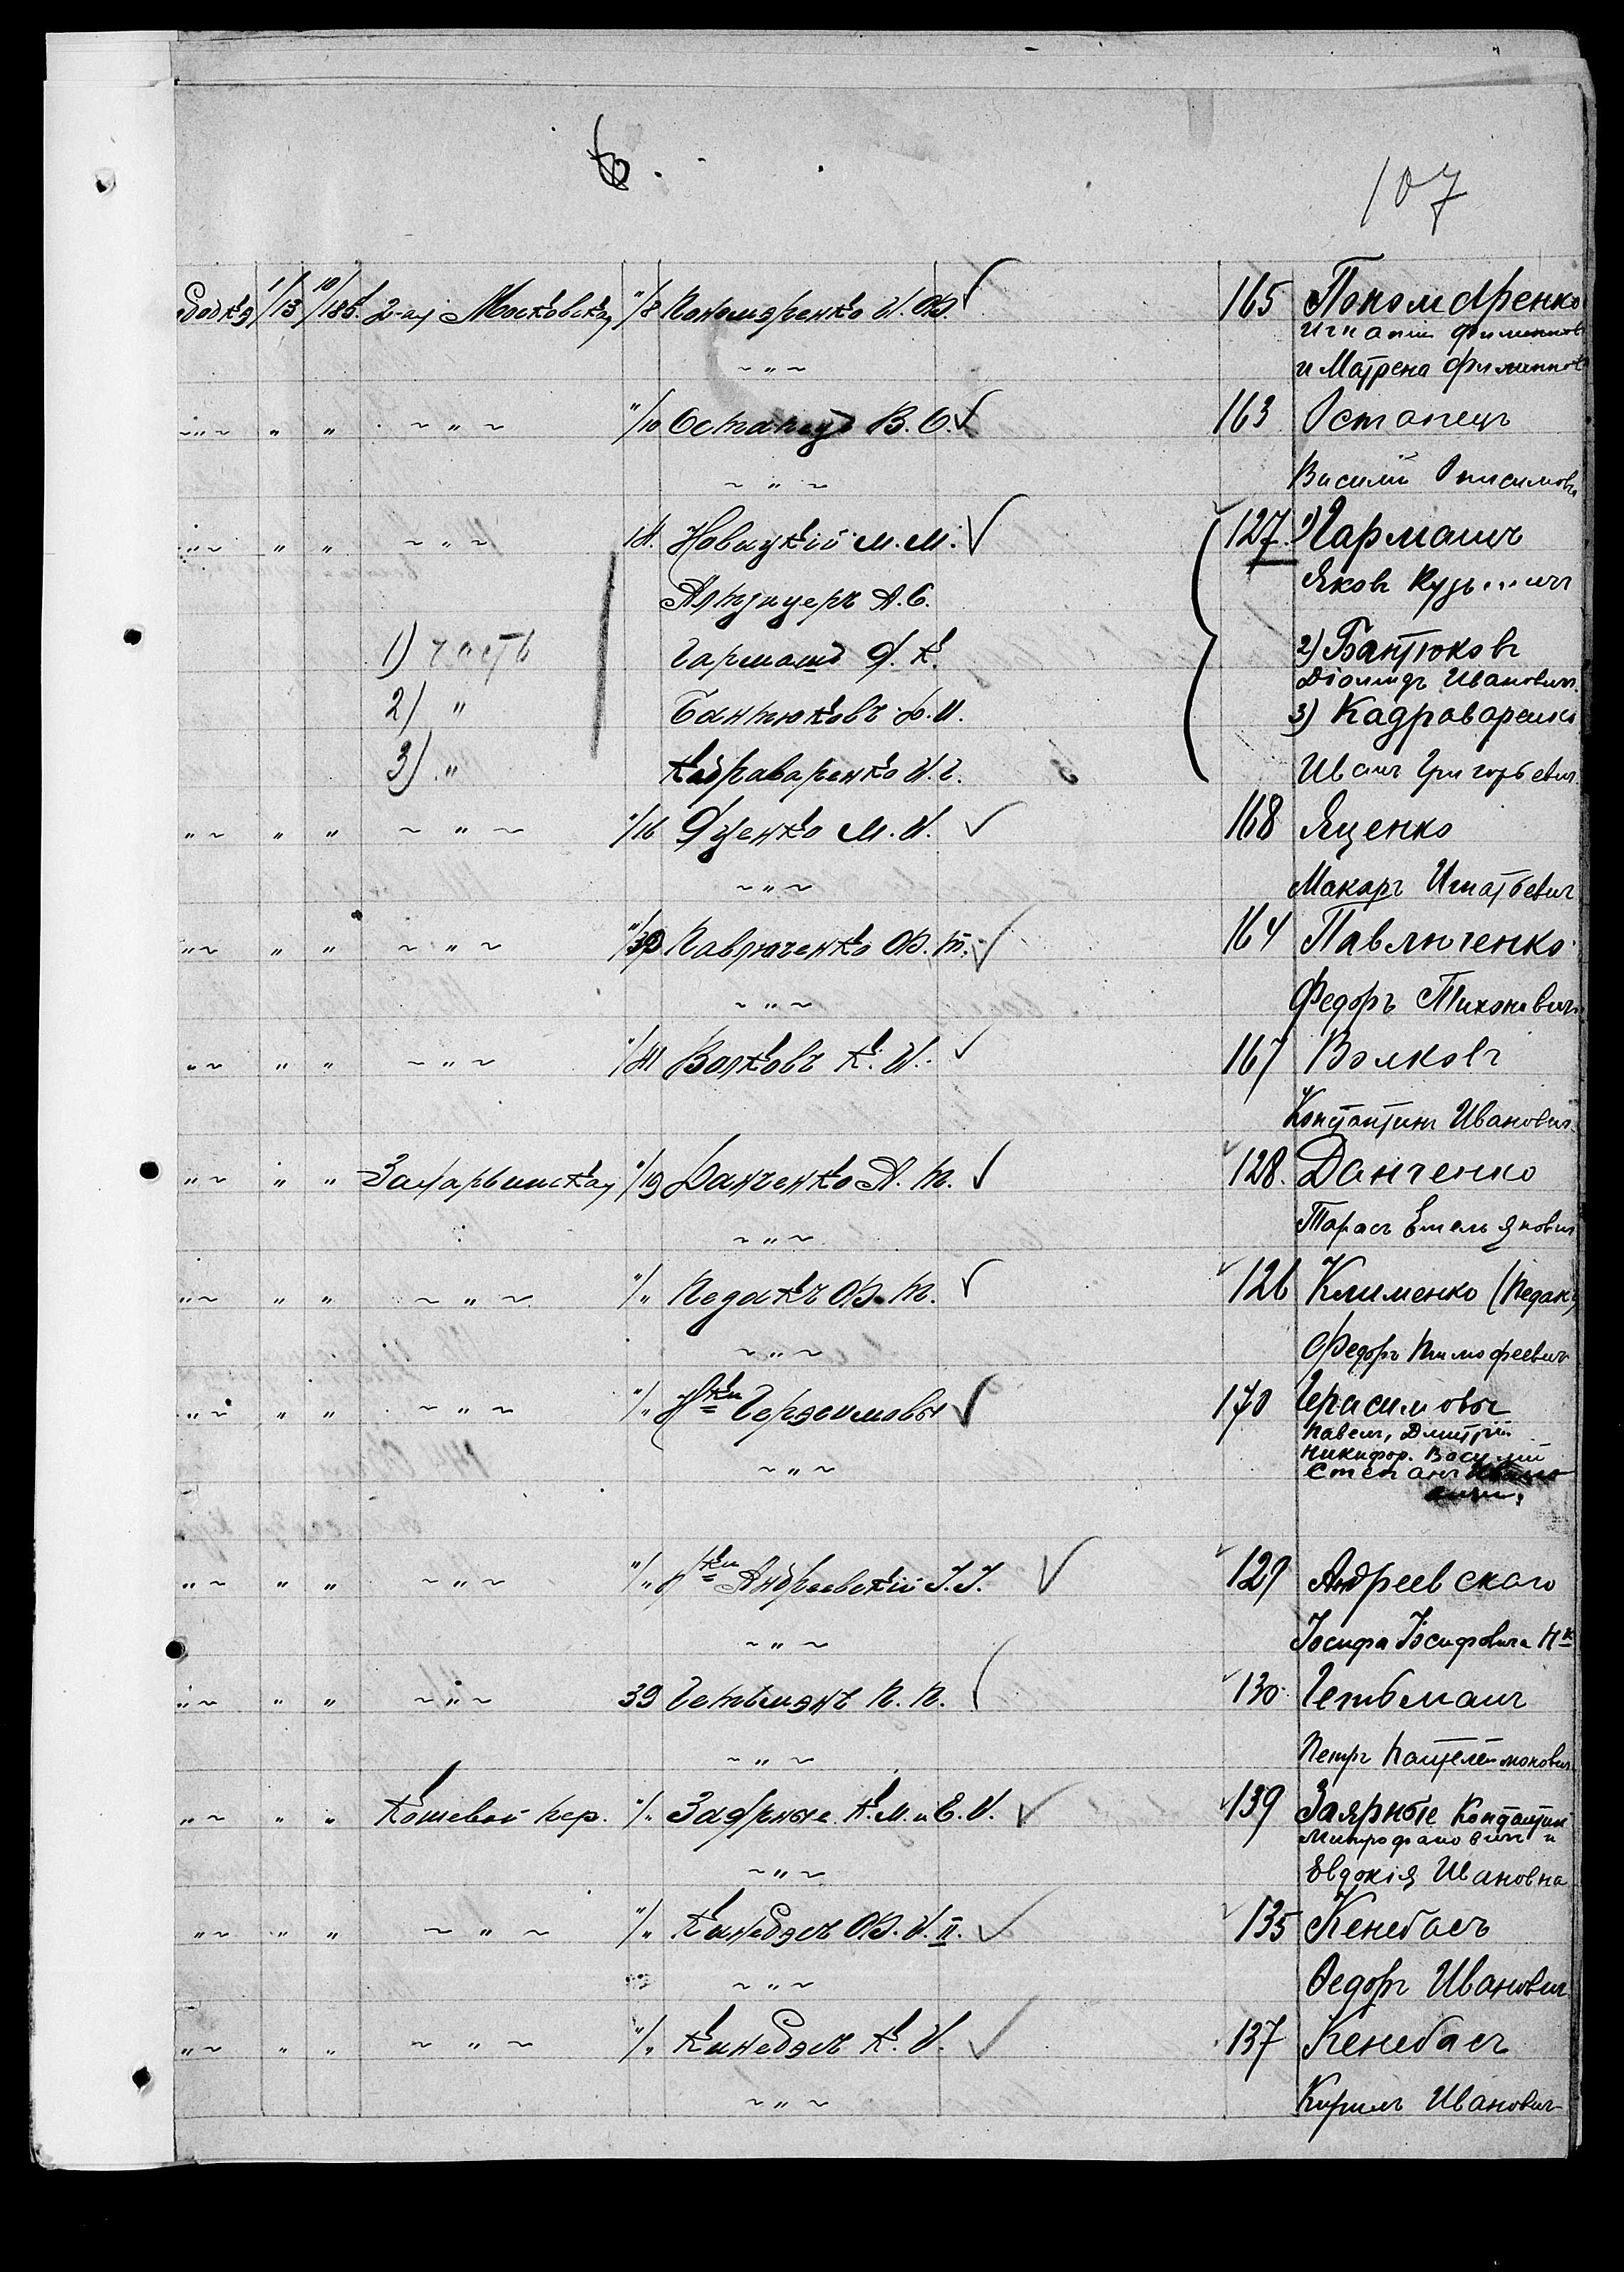 6.
107
1/13 10/186. 2-ая Московская "/8 Пономаренко И. Ф. 165 Пономаренко
Игнатій Филиппов
~ " ~ и Матрена Филиппов
~ " ~ " " ~ " ~ "/10 Остапецъ В. О. 163 Остапецъ
~ " ~ Василій Онисимовъ
~ " ~ " " ~ " ~ 14. Новицкій М. М. 127. 1) Гармашъ
А. С. Яковъ
1) часть Гармашъ Я. К. 2) Бантюковъ
Діомидъ Ивановичъ
2) " Бантюковъ Д. И. 3) Кадроваренко
3) " Кадраваренко И. Г. Иванъ Григорьевич
" ~ " " ~ " ~ "/16 Яценко М. И. 168 Яценко
~ " ~ Макаръ Игнатьевич
" ~ " " ~ " ~ Павлюченко Ф. Т. 164 Павлюченко
~ " ~ Федоръ Тихонович
" ~ " " ~ " ~ Волковъ К. И. 167 Волковъ
Константинъ Ивановичъ
" ~ " " Захарьинская "/19 Данченко А. Т. 128. Данченко
~ " ~ Тарасъ Емельянович
" ~ " " ~ " ~ "/" Педакъ Ф. Т. 126 Клименко (Педакъ)
~ " ~ Федоръ Тимофеевич
" ~ " " ~ " ~ "/" Н-ки Герасимовы 170 Герасимовы
Павелъ, Дмитрій
~ " ~ Никифор. Василій
Степанъ
" ~ " " ~ " ~ "/" Н-ки Андреевскій І. І. 129 Андреевскаго
~ " ~ Іосифа Іосифовича Н-к
" ~ " " ~ " ~ 39 Гетьманъ П. П. 130 Гетьманъ
~ " ~ Петръ Пантелеймонович
" ~ " " Кошевой пер. "/" Заярные К. М. и Е. И. 139 Заярные Константин
Митрофанович и
~ " ~ Евдокія Ивановна
" ~ " " ~ " ~ "/" Кинебасъ Ф. И. II. 135 Кенебасъ
~ " ~ Федоръ Иванович
" ~ " " ~ " ~ "/" Кинебасъ К. И. 137 Кенебасъ
~ " ~ Кирилъ Иванович